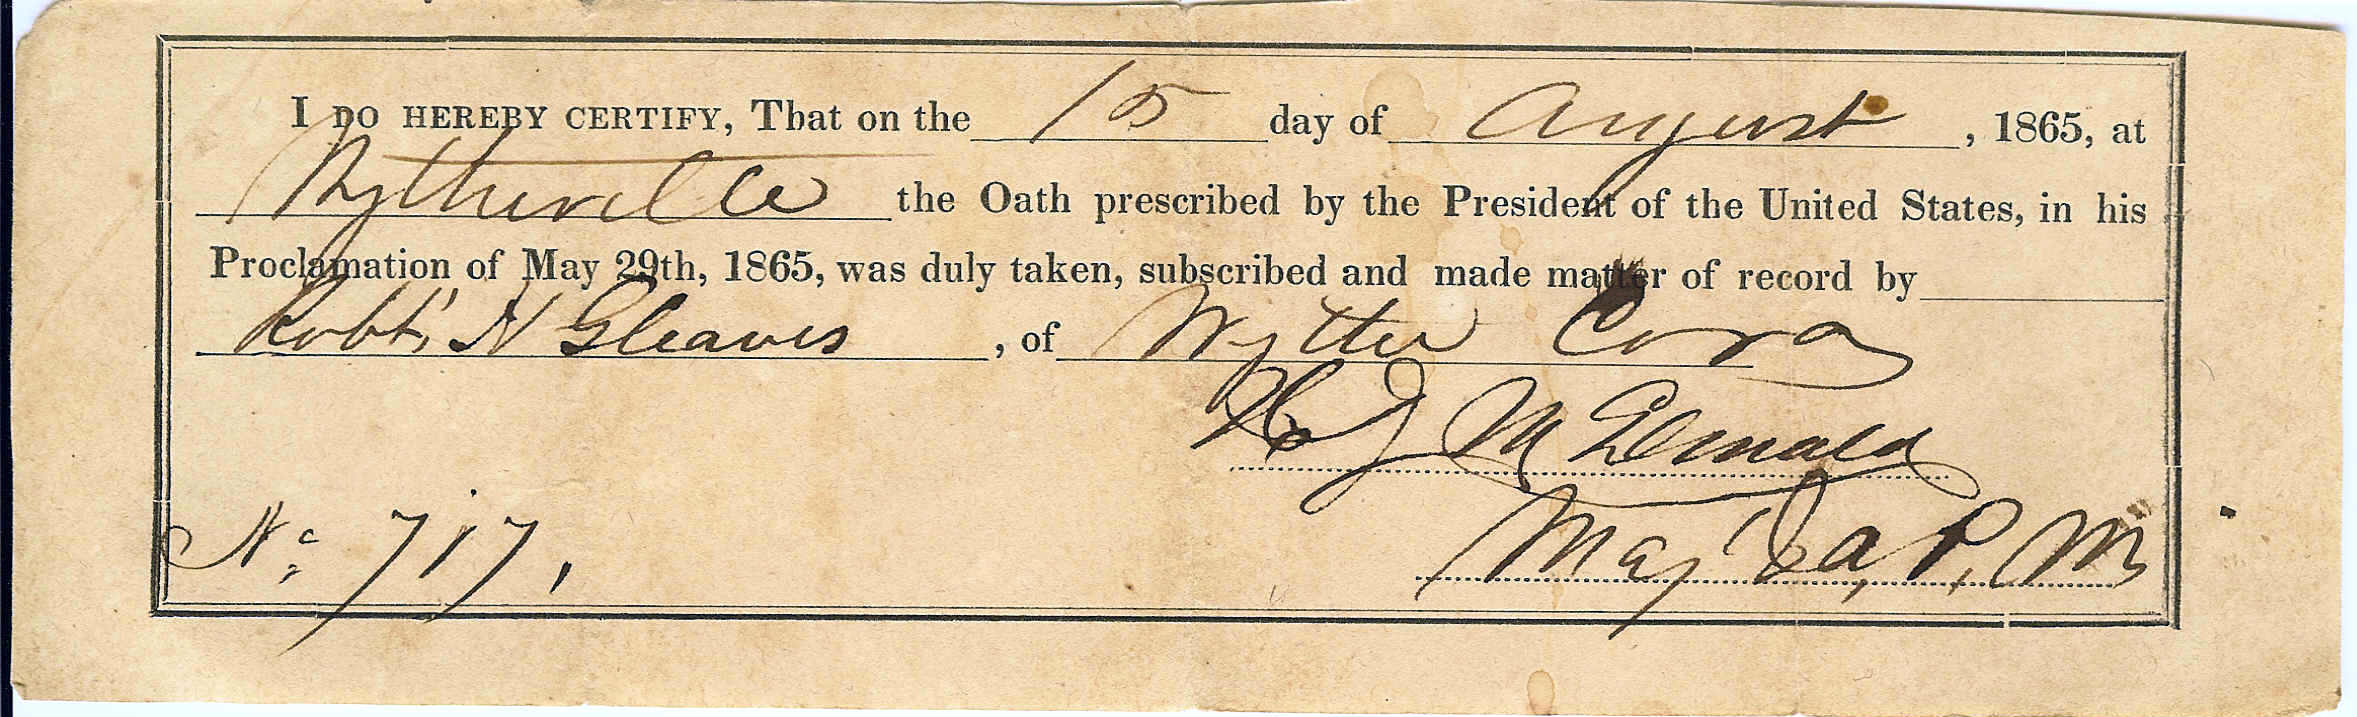 I DO HEREBY CERTIFY, That on the 15 day of August, 1865, at
Wytheville the Oath prescribed by the President of the United States, in his
Proclamation of May 29th, 1865, was duly taken, subscribed and made matter of record by
Robt. N Gleaves, of Wythe Co Va
McDonald
No. 717. Maj P, M,